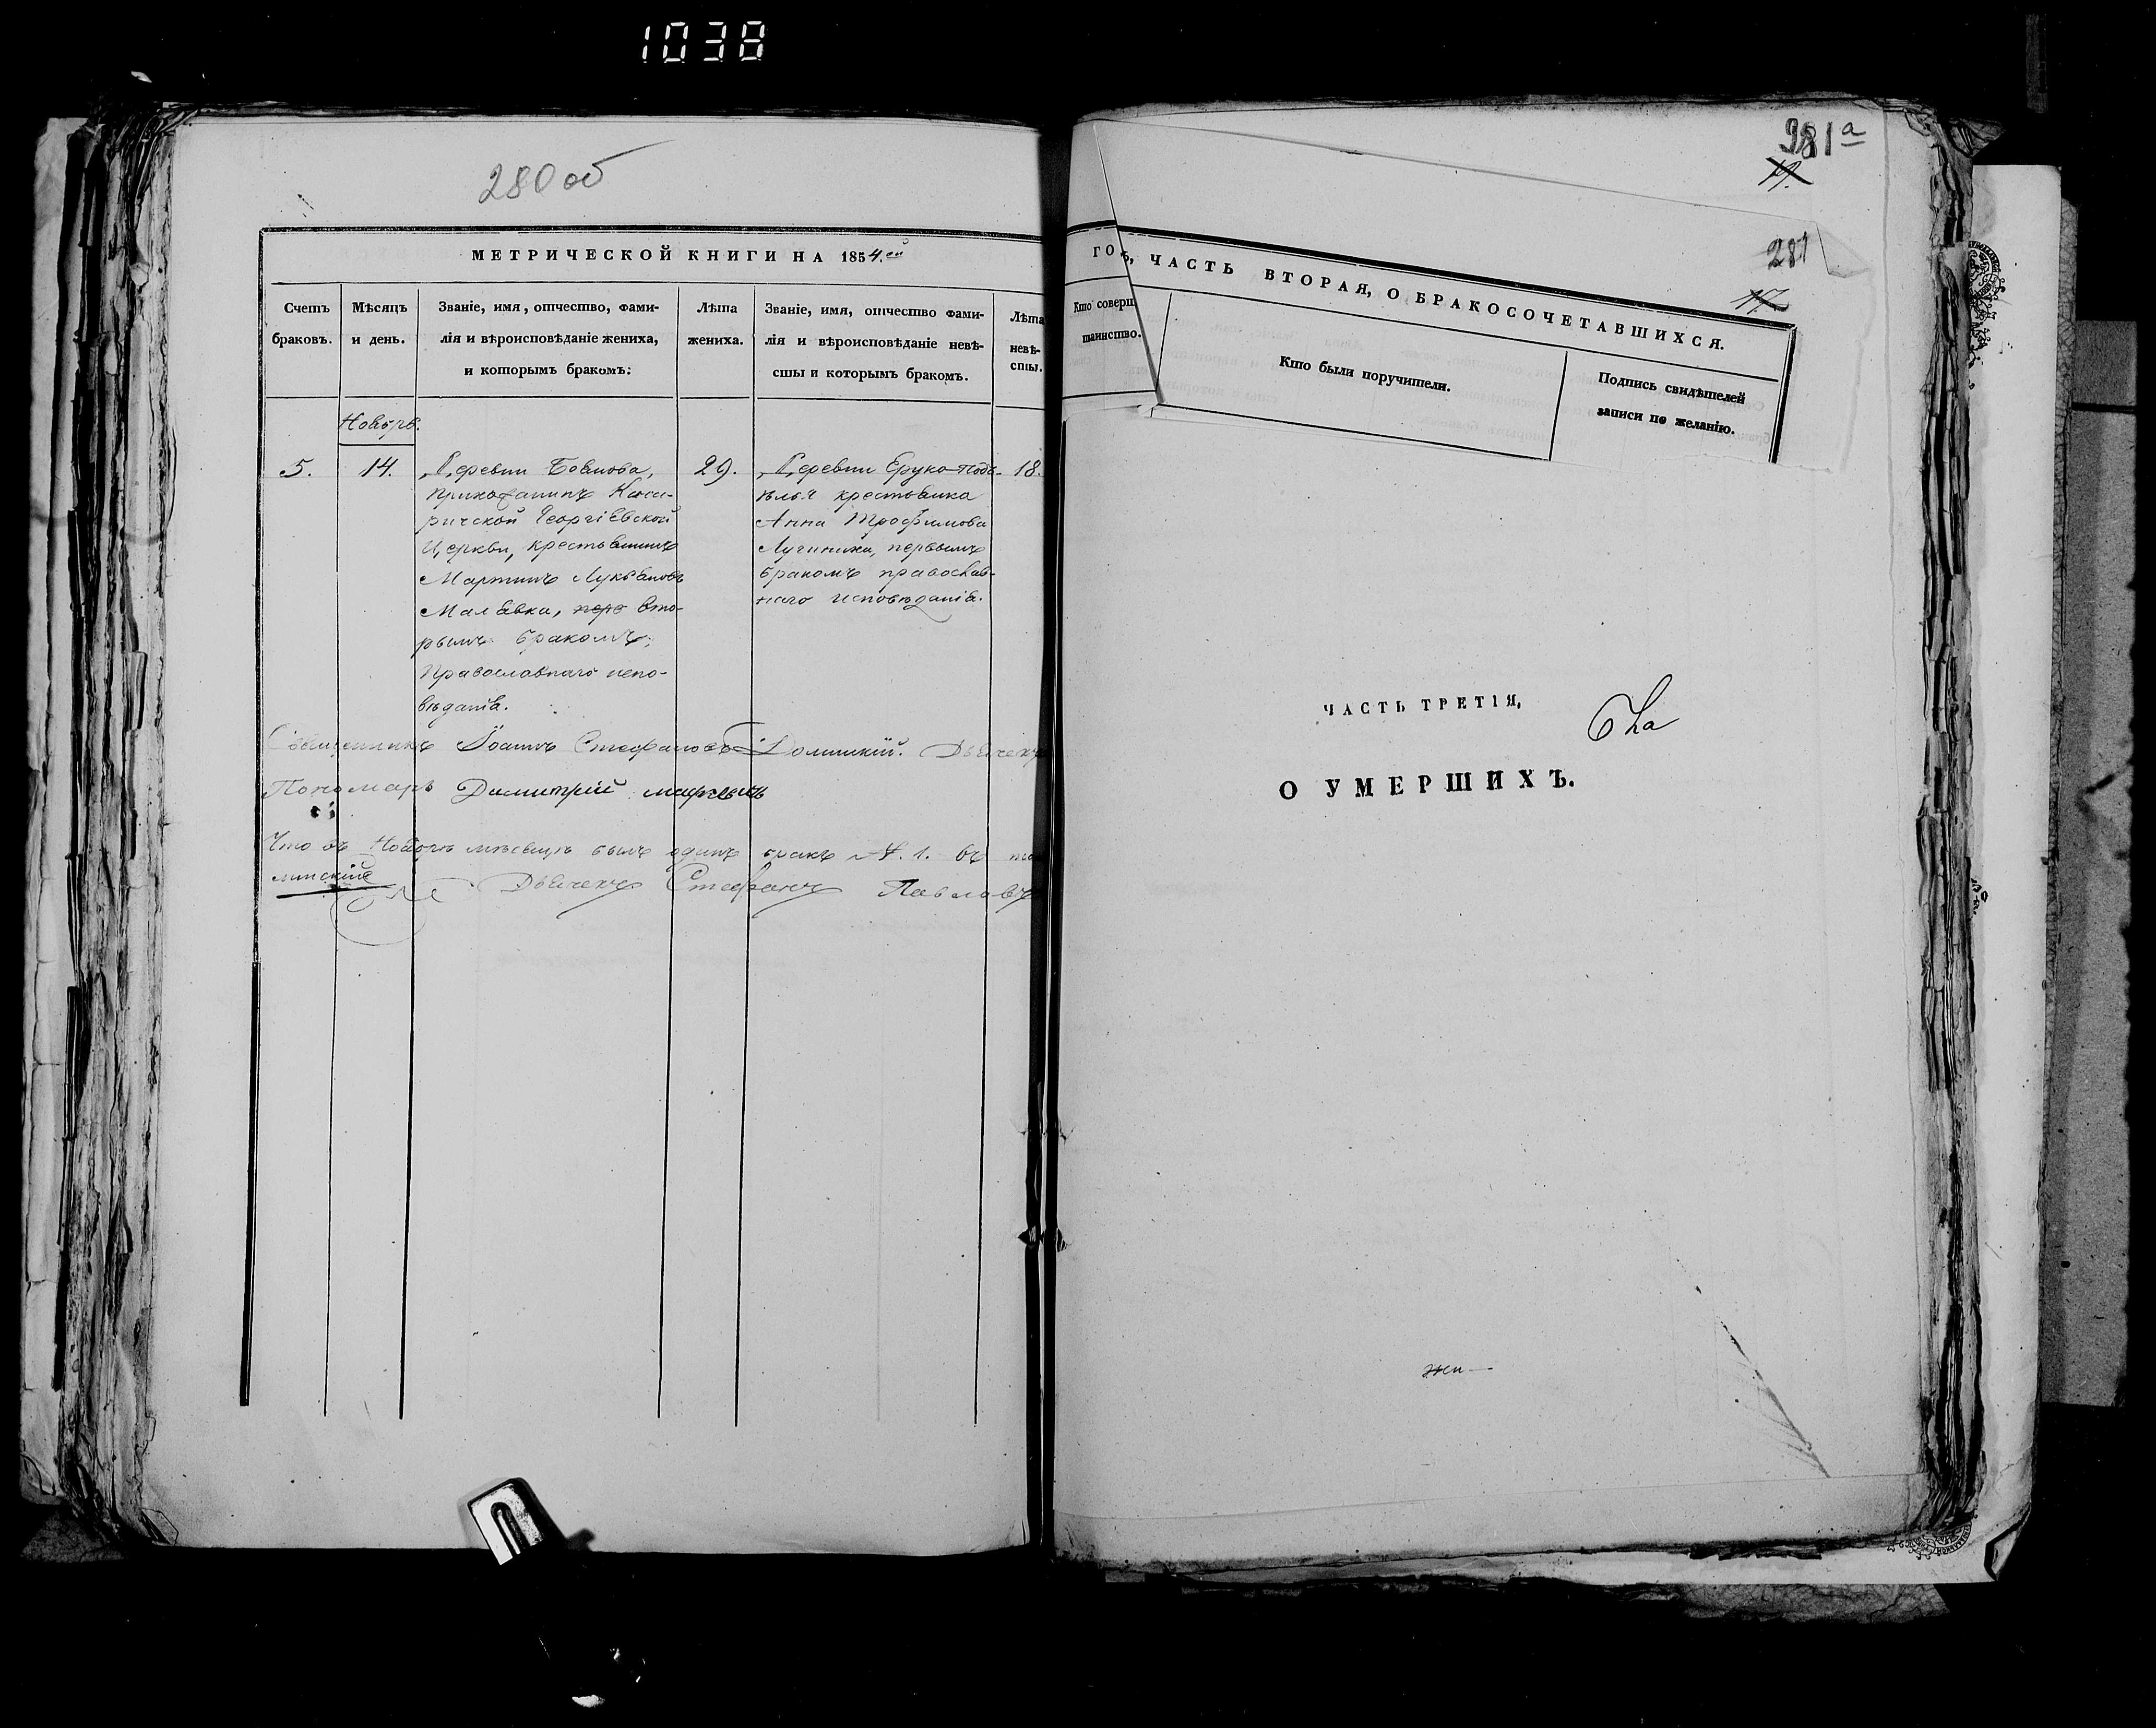 1038
280 об
МЕТРИЧЕСКОЙ КНИГИ НА 1854.ой
Счетъ браковъ.
Мѣсяцъ и день.
Званіе, имя, отчество, фами-
лія и вѣроисповѣданіе жениха,
и которымъ бракомъ:
Лѣта жениха.
Званіе, имя, отчество фами-
лія и вѣроисповѣданіе невѣ-
сты и которымъ бракомъ.
Лѣта
невѣ-
сты.
Ноябрь.
5.
14.
Деревни
прихожанинъ
Георгіевской
Церкви, крестьянинъ
Мартинъ Лукьяновъ
Малявка, перв вто-
рымъ бракомъ,
Православнаго испо-
вѣданія.
29.
Деревни
крестьянка
Анна Трофимова
первымъ
бракомъ православ-
наго исповѣданія.
18.
Священникъ Іоаннъ Стефановъ Дьячекъ
Пономарь Димитрій
Что въ Ноябрѣ мѣсяцѣ былъ одинъ бракъ №. 1. въ
Дьячекъ Стефанъ Павловъ
981а
19.
281
17.
ГОДЪ, ЧАСТЬ ВТОРАЯ, О БРАКОСОЧЕТАВШИХСЯ.
Кто соверш.
таинство.
Кто были поручители.
Подпись свидѣтелей
записи по желанію.
ЧАСТЬ ТРЕТІЯ,
О УМЕРШИХЪ.